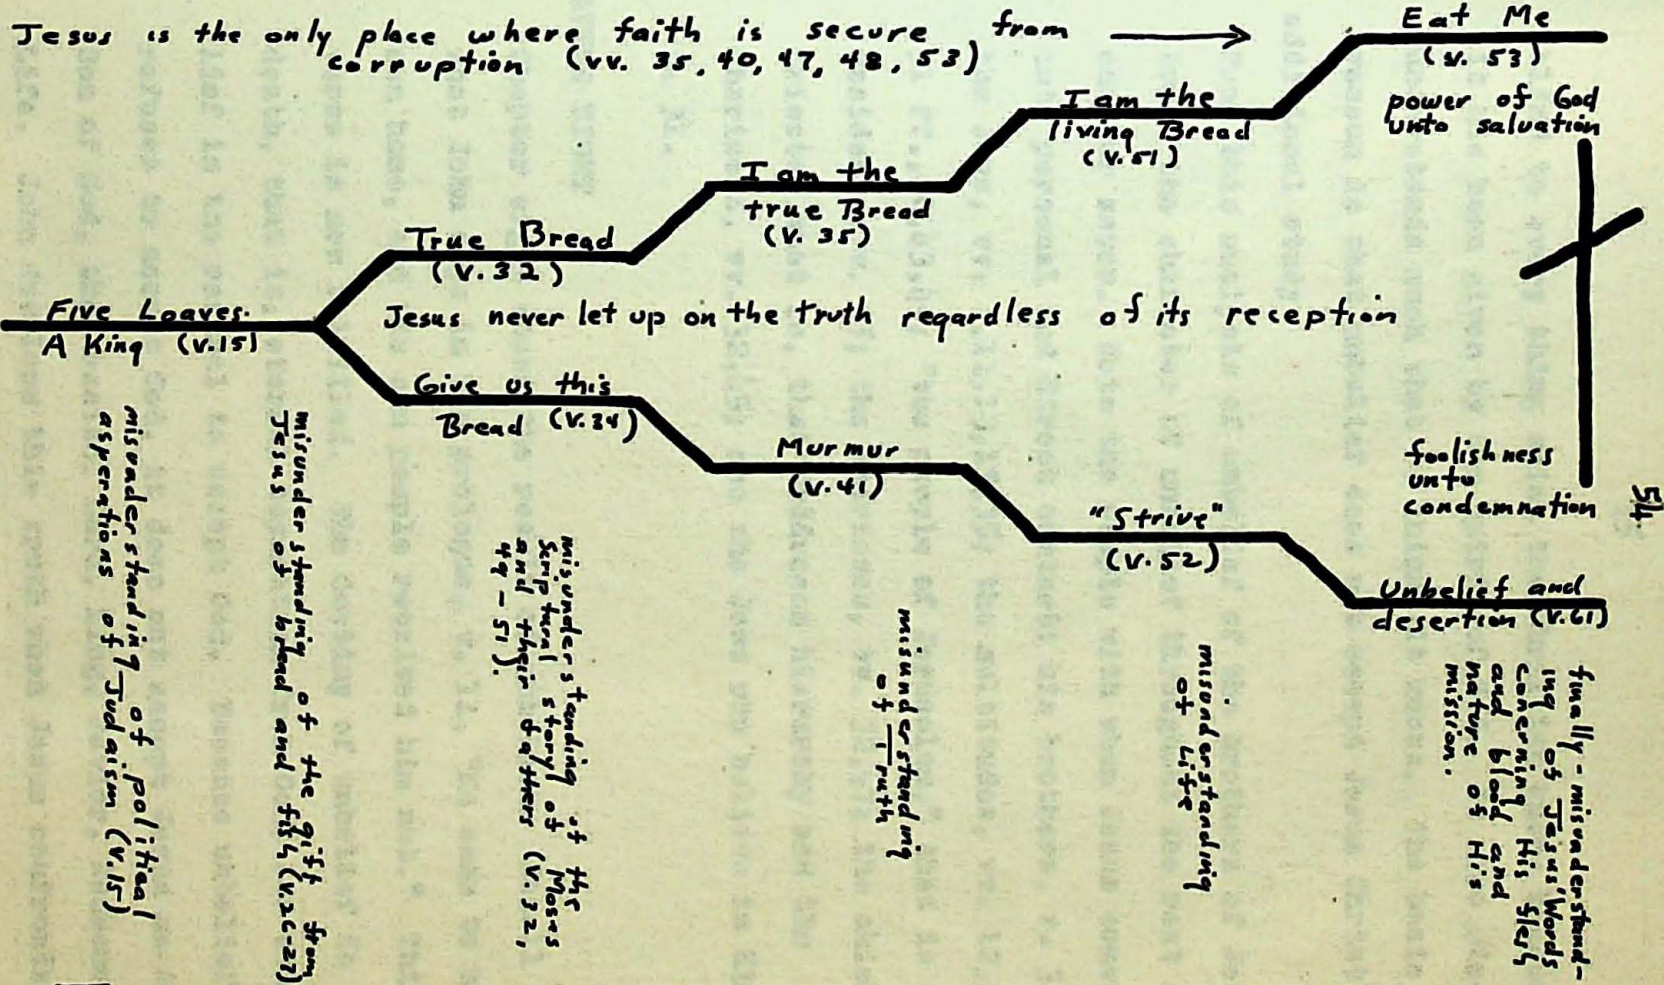 Jesus is the only place where faith is secure from
corruption (vv. 35, 40, 47, 48, 53)
Eat Me
(v. 53)
power of God
unto salvation
I am the
living Bread
(v. 51)
I am the
true Bread
(v. 35)
True Bread
(v. 32)
Five Loaves.
A King (v.15)
Jesus never let up on the truth regardless of its reception
Give us this
Bread (v.34)
Murmur
(v.41)
"Strive"
(v.52)
foolishness
unto
condemnation
Unbelief and
desertion (v.61)
54.
misunderstanding of political
asperations of Judaism (v.15)
misunderstanding of the gift from
Jesus of bread and fish (v.26-27)
misunderstanding of the
Scriptural story of Moses
and their fathers (v.32,
49-51).
misunderstanding
of Truth
misunderstanding
of Life
finally-misunderstand-
ing of Jesus' Words
concerning His flesh
and blood and
nature of His
mission.